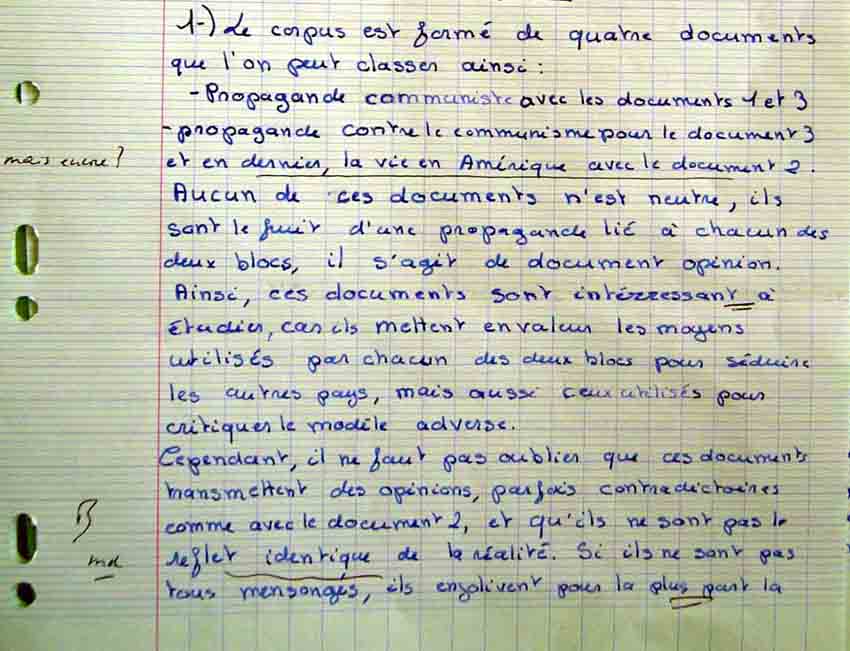 1-) Le corpus est formé de quatre documents
que l'on peut classer ainsi :
- Propagande communiste avec les documents 1 et 3
- propagande contre le communisme pour le document 3
mais encore ?
et en dernier, la vie en Amérique avec le document 2.
Aucun de ces documents n'est neutre, ils
sont le fruit d'une propagande lié à chacun des
deux blocs, il s'agit de document opinion.
Ainsi, ces documents sont intérressant à
étudier, car ils mettent en valeur les moyens
utilisés par chacun des deux blocs pour séduire
les autres pays, mais aussi ceux utilisés pour
critiquer le modèle adverse.
Cependant, il ne faut pas oublier que ces documents
transmettent des opinions, parfois contradictoires
comme avec le document 2, et qu'ils ne sont pas le
B
md
reflet identique de la réalité. Si ils ne sont pas
tous mensongés, ils enjolivent pour la plus part la